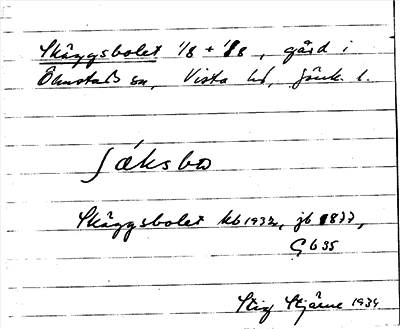 Skäggsbolet 1/8 + 1/8, gård i
Ölmstads sn, Vista hd, Jönk. l.
Skäggsbolet kb 1932, jb 1877,
Gb 35
Stig Stjärne 1934